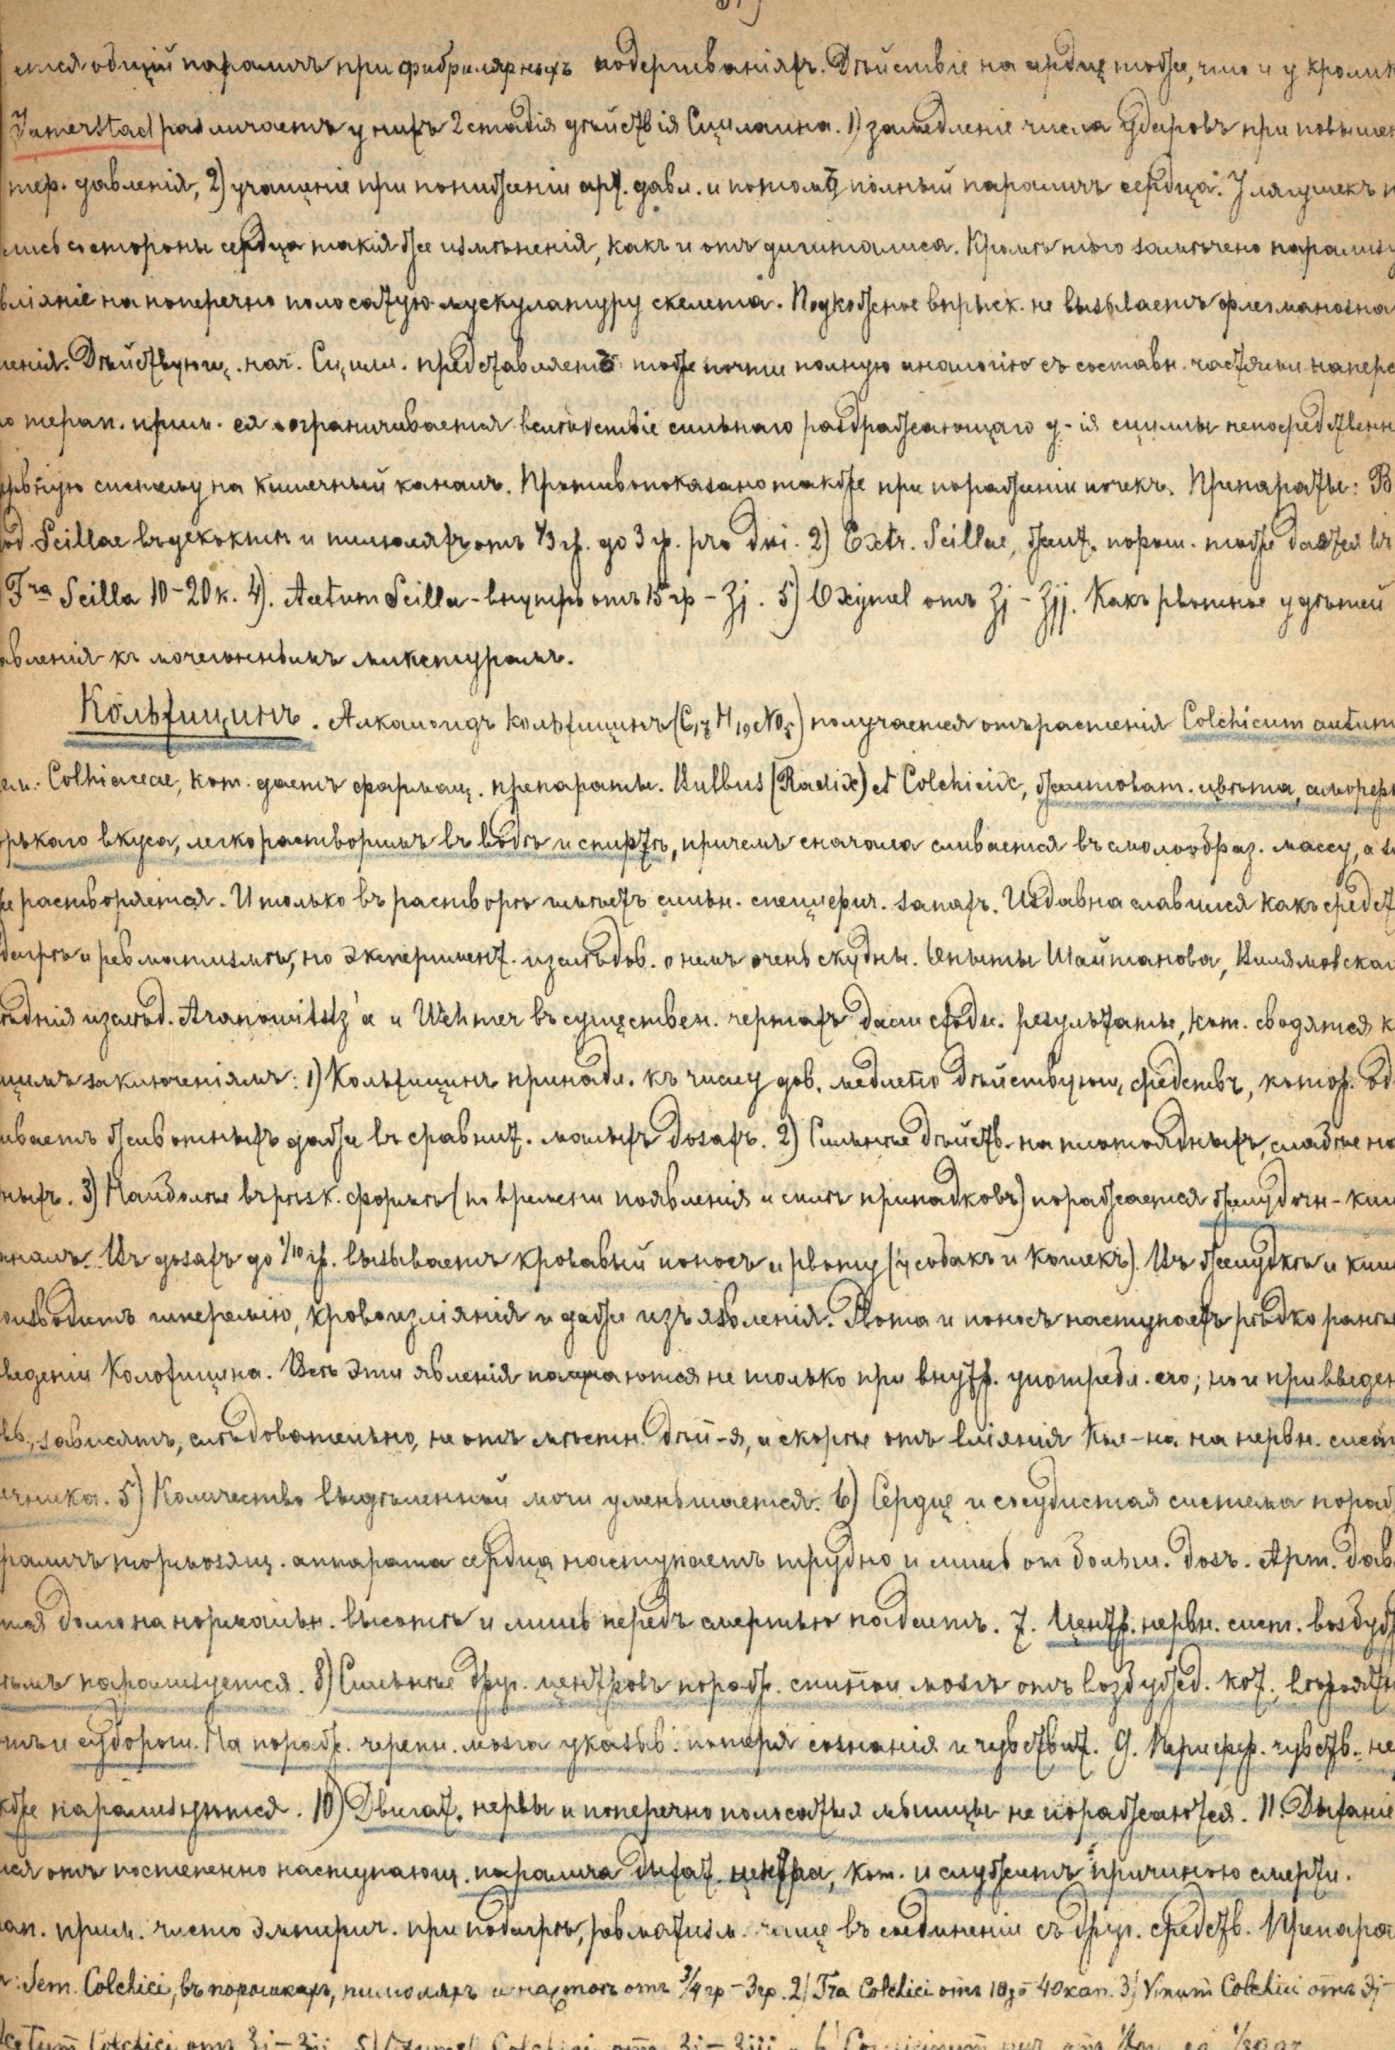 ется общій параличъ при фибрилярныхъ подергиваніяхъ. Дѣйствіе на сердце тоже, что и у кролик
Jamerstad различаетъ у нихъ 2 стадія дѣйствія Сциллаина. 1) замедленіе числа ударовъ при повышен
тер. давленія, 2) учащеніе при пониженіи арт. давл. и потомъ полный параличъ сердца. У лягушекъ н
лись со стороны сердца такія же измѣненія, какъ и отъ дигиталиса. Кромѣ того замѣчено парализу
вліяніе на поперечно полосатую мускулатуру скелета. Подкожное впрыск. не вызываетъ флегмонозна
ленія. Дѣйствующ. нач. Сцилл. представляетъ тоже почти полную аналогію съ составн. частями наперс
о терап. прим. ея ограничивается вслѣдствіе сильнаго раздражающаго д-ія сциллы непосредственн
ервную систему на кишечный каналъ. Противопоказано также при пораженіи почекъ. Препараты: В
od. Scillae въ декоктѣ и пилюляхъ отъ 1/3 гр. до 3 гр. pro dosi. 2) Extr. Scillae, желт. порош. тоже дается въ
Tra Scilla 10-20 к. 4). Acetum Scilla - внутрь отъ 15 гр - ʒj. 5) Oxymel отъ ʒj - ʒjj. Какъ рвотное у дѣтей
авленія къ мочегоннымъ микстурамъ.
Кольхицинъ. Алкалоидъ кольхицинъ (C17 H19 NO5) получается отъ растенія Colchicum autum
ем. Colhiaceae, кот. даетъ фармац. препараты. Bulbus (Radix) et Colchicix, желтоват. цвѣта, аморфен
орькаго вкуса, легко растворимъ въ водѣ и спиртѣ, причемъ сначала сливается въ смолообраз. массу, а з
же растворяется. И только въ растворѣ имѣетъ сильн. специфич. запахъ. Издавна славился какъ средст
дагрѣ и ревматизмѣ, но эксперимент. изслѣдов. о немъ очень скудны. Опыты Шайтанова, Вилямовскаг
ѣднія изслѣд. Aranowitstz'a и Wehmer въ существен. чертахъ дали сходн. результаты, кот. сводятся к
щимъ заключеніямъ: 1) Кольхицинъ принадл. къ числу дов. медленно дѣйствующ. средствъ, котор. од
иваетъ животныхъ даже въ сравнит. малыхъ дозахъ. 2) Сильнѣе дѣйств. на плотоядныхъ, слабѣе на
ныхъ. 3) Наиболѣе въ рѣзк. формѣ (по времени появленія и силѣ припадковъ) поражается желудочн-киш
аналъ. Въ дозахъ до 1/10 гр. вызываетъ кровавый поносъ и рвоту (у собакъ и кошекъ). Въ желудкѣ и киш
оизводитъ гиперемію, кровоизліянія и даже изъязвленія. Рвота и поносъ наступаетъ рѣдко ранѣе
веденіи Колхицина. Всѣ эти явленія получаются не только при внутр. употребл. его; но и при введен
вь, зависятъ, слѣдовательно, не отъ мѣстн. дѣй-я, а скорѣе отъ вліянія Кол-на на нервн. сист
ечника. 5) Количество выдѣленной мочи уменьшается. 6) Сердце и сосудистая система пораж
раличъ тормозящ. аппарата сердца наступаетъ трудно и лишь от больш. дозъ. Арт. дав
тся долго на нормальн. высотѣ и лишь передъ смертью падаетъ. 7. Центр. нервн. сист. возбуж
тѣмъ парализуется. 8) Сильнѣе друг. центровъ пораж. спинной мозгъ отъ возбужд. кот. вѣроятн
тъ и судороги. На пораж. черепн. мозга указыв: потеря сознанія и чувствит. 9. Перифер. чувств. не
кже парализуются. 10) Двигат. нервы и поперечно полосатыя мышцы не поражаются. 11. Дыханіе
ся отъ постепенно наступающ. паралича дыхат. центра, кот. и служитъ причиною смерти.
ап. прим. чисто эмпирич. при подагрѣ, ревматизм. чаще въ соединеніи съ друг. средств. Препара
Sem. Colchici, въ порошкахъ, пилюляхъ и настоѣ отъ 3/4 гр - 3 гр. 2) Tra Colchici отъ 10 до 40 кап. 3) Vinum Colchici отъ ʒj-
cetum Colchici отъ ʒj - ʒjj. 5) Oxymel Colchici отъ ʒj - ʒjjj.